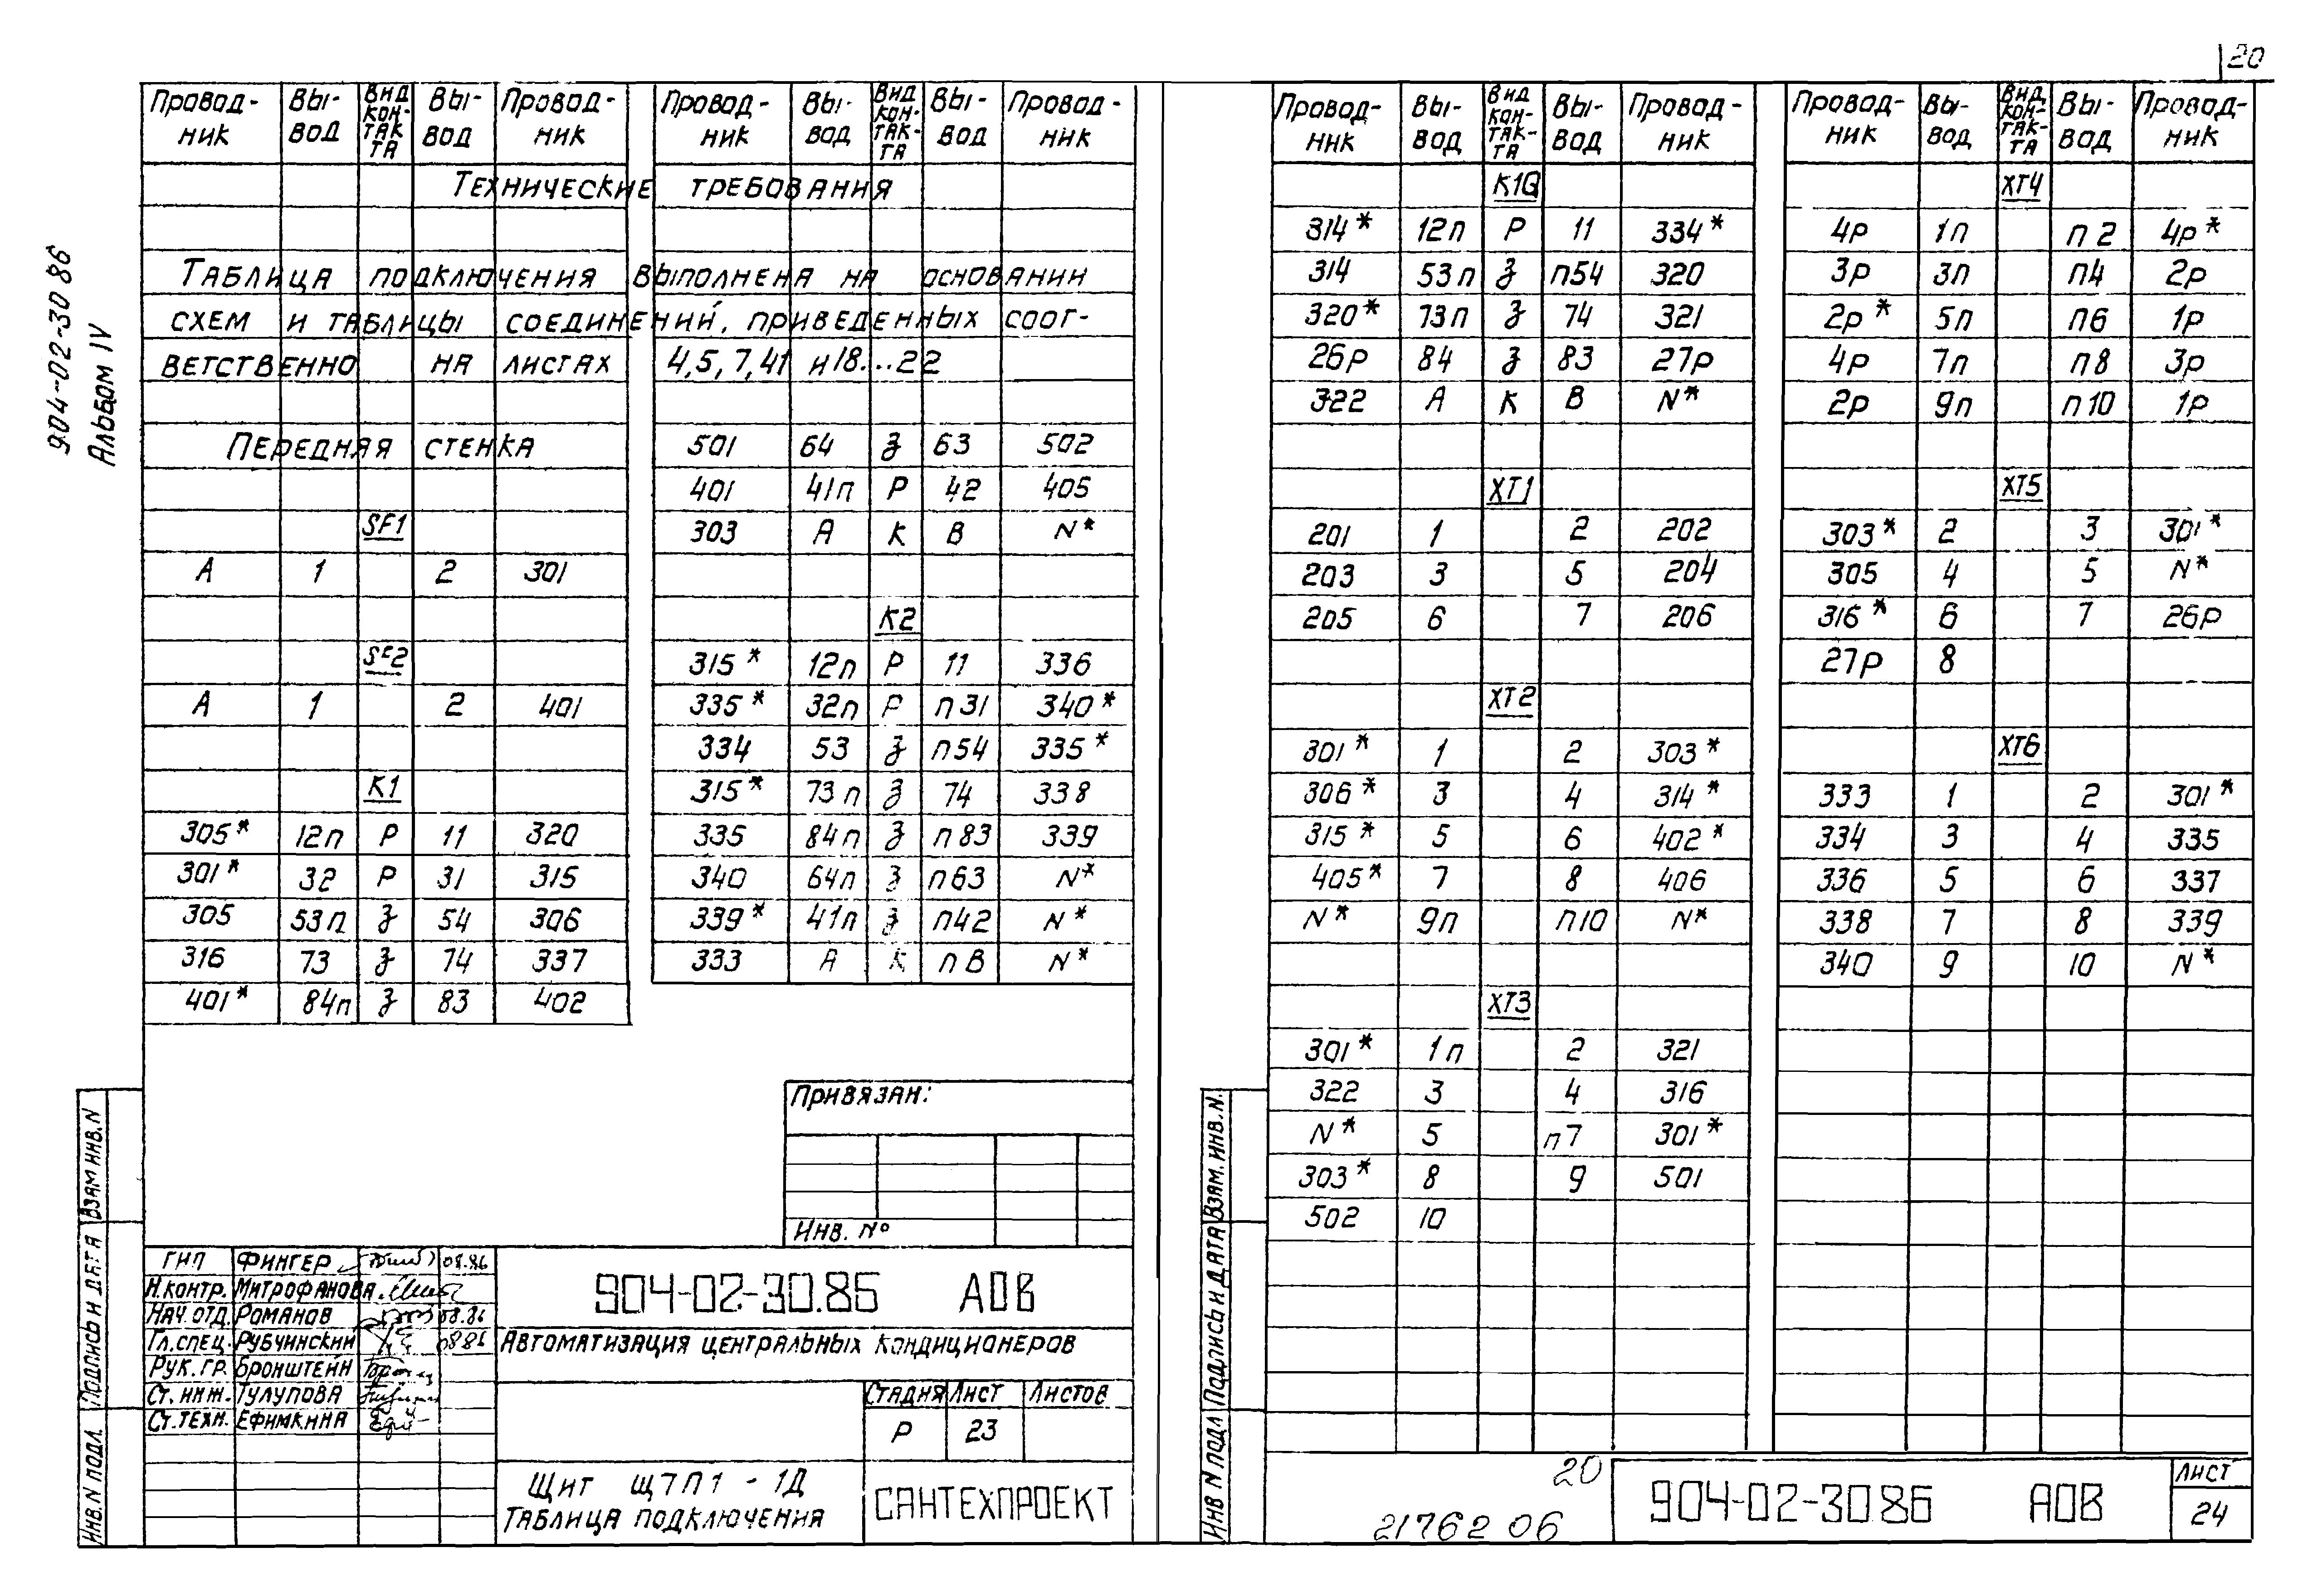 20
904-02-30 86
Альбом IV
Провод-ник Вы-вод Вид кон-так та Вы-вод Провод-ник
Технические требования
Таблица подключения выполнена на основании
схем и таблицы соединений, приведенных соот-
ветственно на листах 4,5,7,41 и 18...22
Передняя стенка
SF1
А 1 2 301
SF2
А 1 2 401
К1
305* 12п Р 11 320
301* 32 Р 31 315
305 53п З 54 306
316 73 З 74 337
401* 84п З 83 402
Провод-ник Вы-вод Вид кон-так-та Вы-вод Провод-ник
501 64 З 63 502
401 41п Р 42 405
303 А К В N*
К2
315* 12п Р 11 336
335* 32п Р п31 340*
334 53 З п54 335*
315* 73п З 74 338
335 84п З п83 339
340 64п З п63 N*
339* 41п З п42 N*
333 А К пВ N*
Привязан:
Инв. №
ГИП Фингер 08.86
Н.контр. Митрофанова
Нач.отд. Романов 08.86
Гл.спец. Рубчинский 08.86
Рук.гр. Бронштейн
Ст.инж. Тулупова
Ст.техн. Ефимкина
904-02-30.86 АОВ
Автоматизация центральных кондиционеров
Стадия Лист Листов
Р 23
Щит Щ7П1 - 1Д
Таблица подключения
САНТЕХПРОЕКТ
Инв.N подл. Подпись и дата Взам инв.N
Провод-ник Вы-вод Вид кон-так-та Вы-вод Провод-ник
К10
314* 12п Р 11 334*
314 53п З п54 320
320* 73п З 74 321
26р 84 З 83 27р
322 А К В N*
ХТ1
201 1 2 202
203 3 5 204
205 6 7 206
ХТ2
301* 1 2 303*
306* 3 4 314*
315* 5 6 402*
405* 7 8 406
N* 9п п10 N*
ХТ3
301* 1п 2 321
322 3 4 316
N* 5 п7 301*
303* 8 9 501
502 10
Провод-ник Вы-вод Вид кон-так-та Вы-вод Провод-ник
ХТ4
4р 1п п2 4р*
3р 3п п4 2р
2р* 5п п6 1р
4р 7п п8 3р
2р 9п п10 1р
ХТ5
303* 2 3 301*
305 4 5 N*
316* 6 7 26р
27р 8
ХТ6
333 1 2 301*
334 3 4 335
336 5 6 337
338 7 8 339
340 9 10 N*
Инв N подл Подпись и дата Взам. инв. N.
20
21762 06
904-02-30 86 АОВ
Лист
24